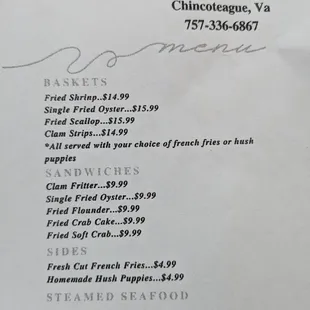 Chincoteague, Va
757-336-6867
menu
BASKETS
Fried Shrinp..$14.99
Single Fried Oyster...$15.99
Fried Scallop...$15.99
Clam Strips...$14.99
*All served with your choice of french fries or hush
puppies
SANDWICHES
Clam Fritter...$9.99
Single Fried Oyster...$9.99
Fried Flounder...$9.99
Fried Crab Cake...$9.99
Fried Soft Crab...$9.99
SIDES
Fresh Cut French Fries...$4.99
Homemade Hush Puppies...$4.99
STEAMED SEAFOOD